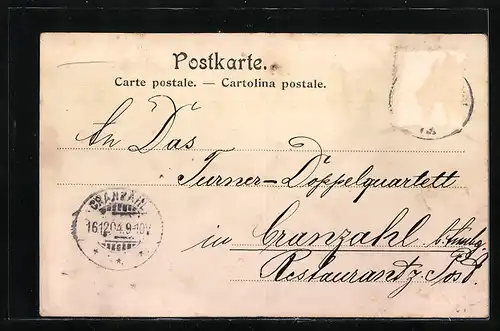 Postkarte.
Carte postale. — Cartolina postale.
An Das
Turner-Doppelquartett
in Cranzahl
Restaurant z. Post.
CRANZAHL
16.12.04.9-10V.